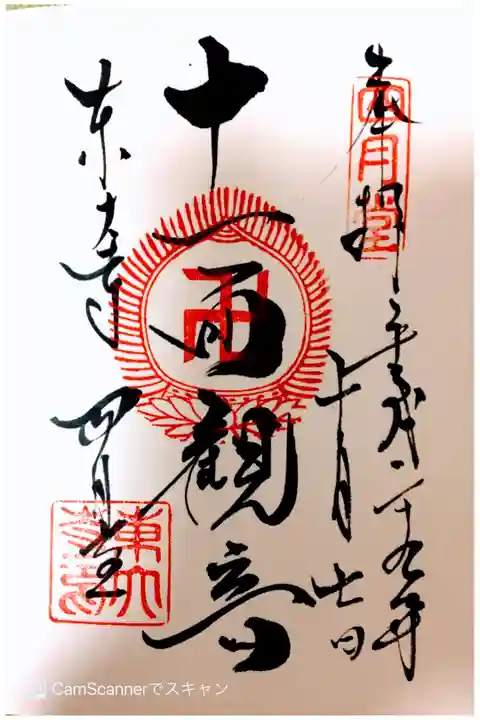 四月堂
奉拝 平成二十九年
十月七日
十一面観音
卍
東大寺 四月堂
CamScannerでスキャン